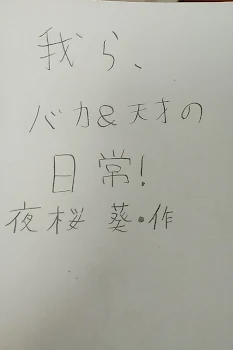 我ら、
バカ&天才の
日常!
夜桜 葵・作